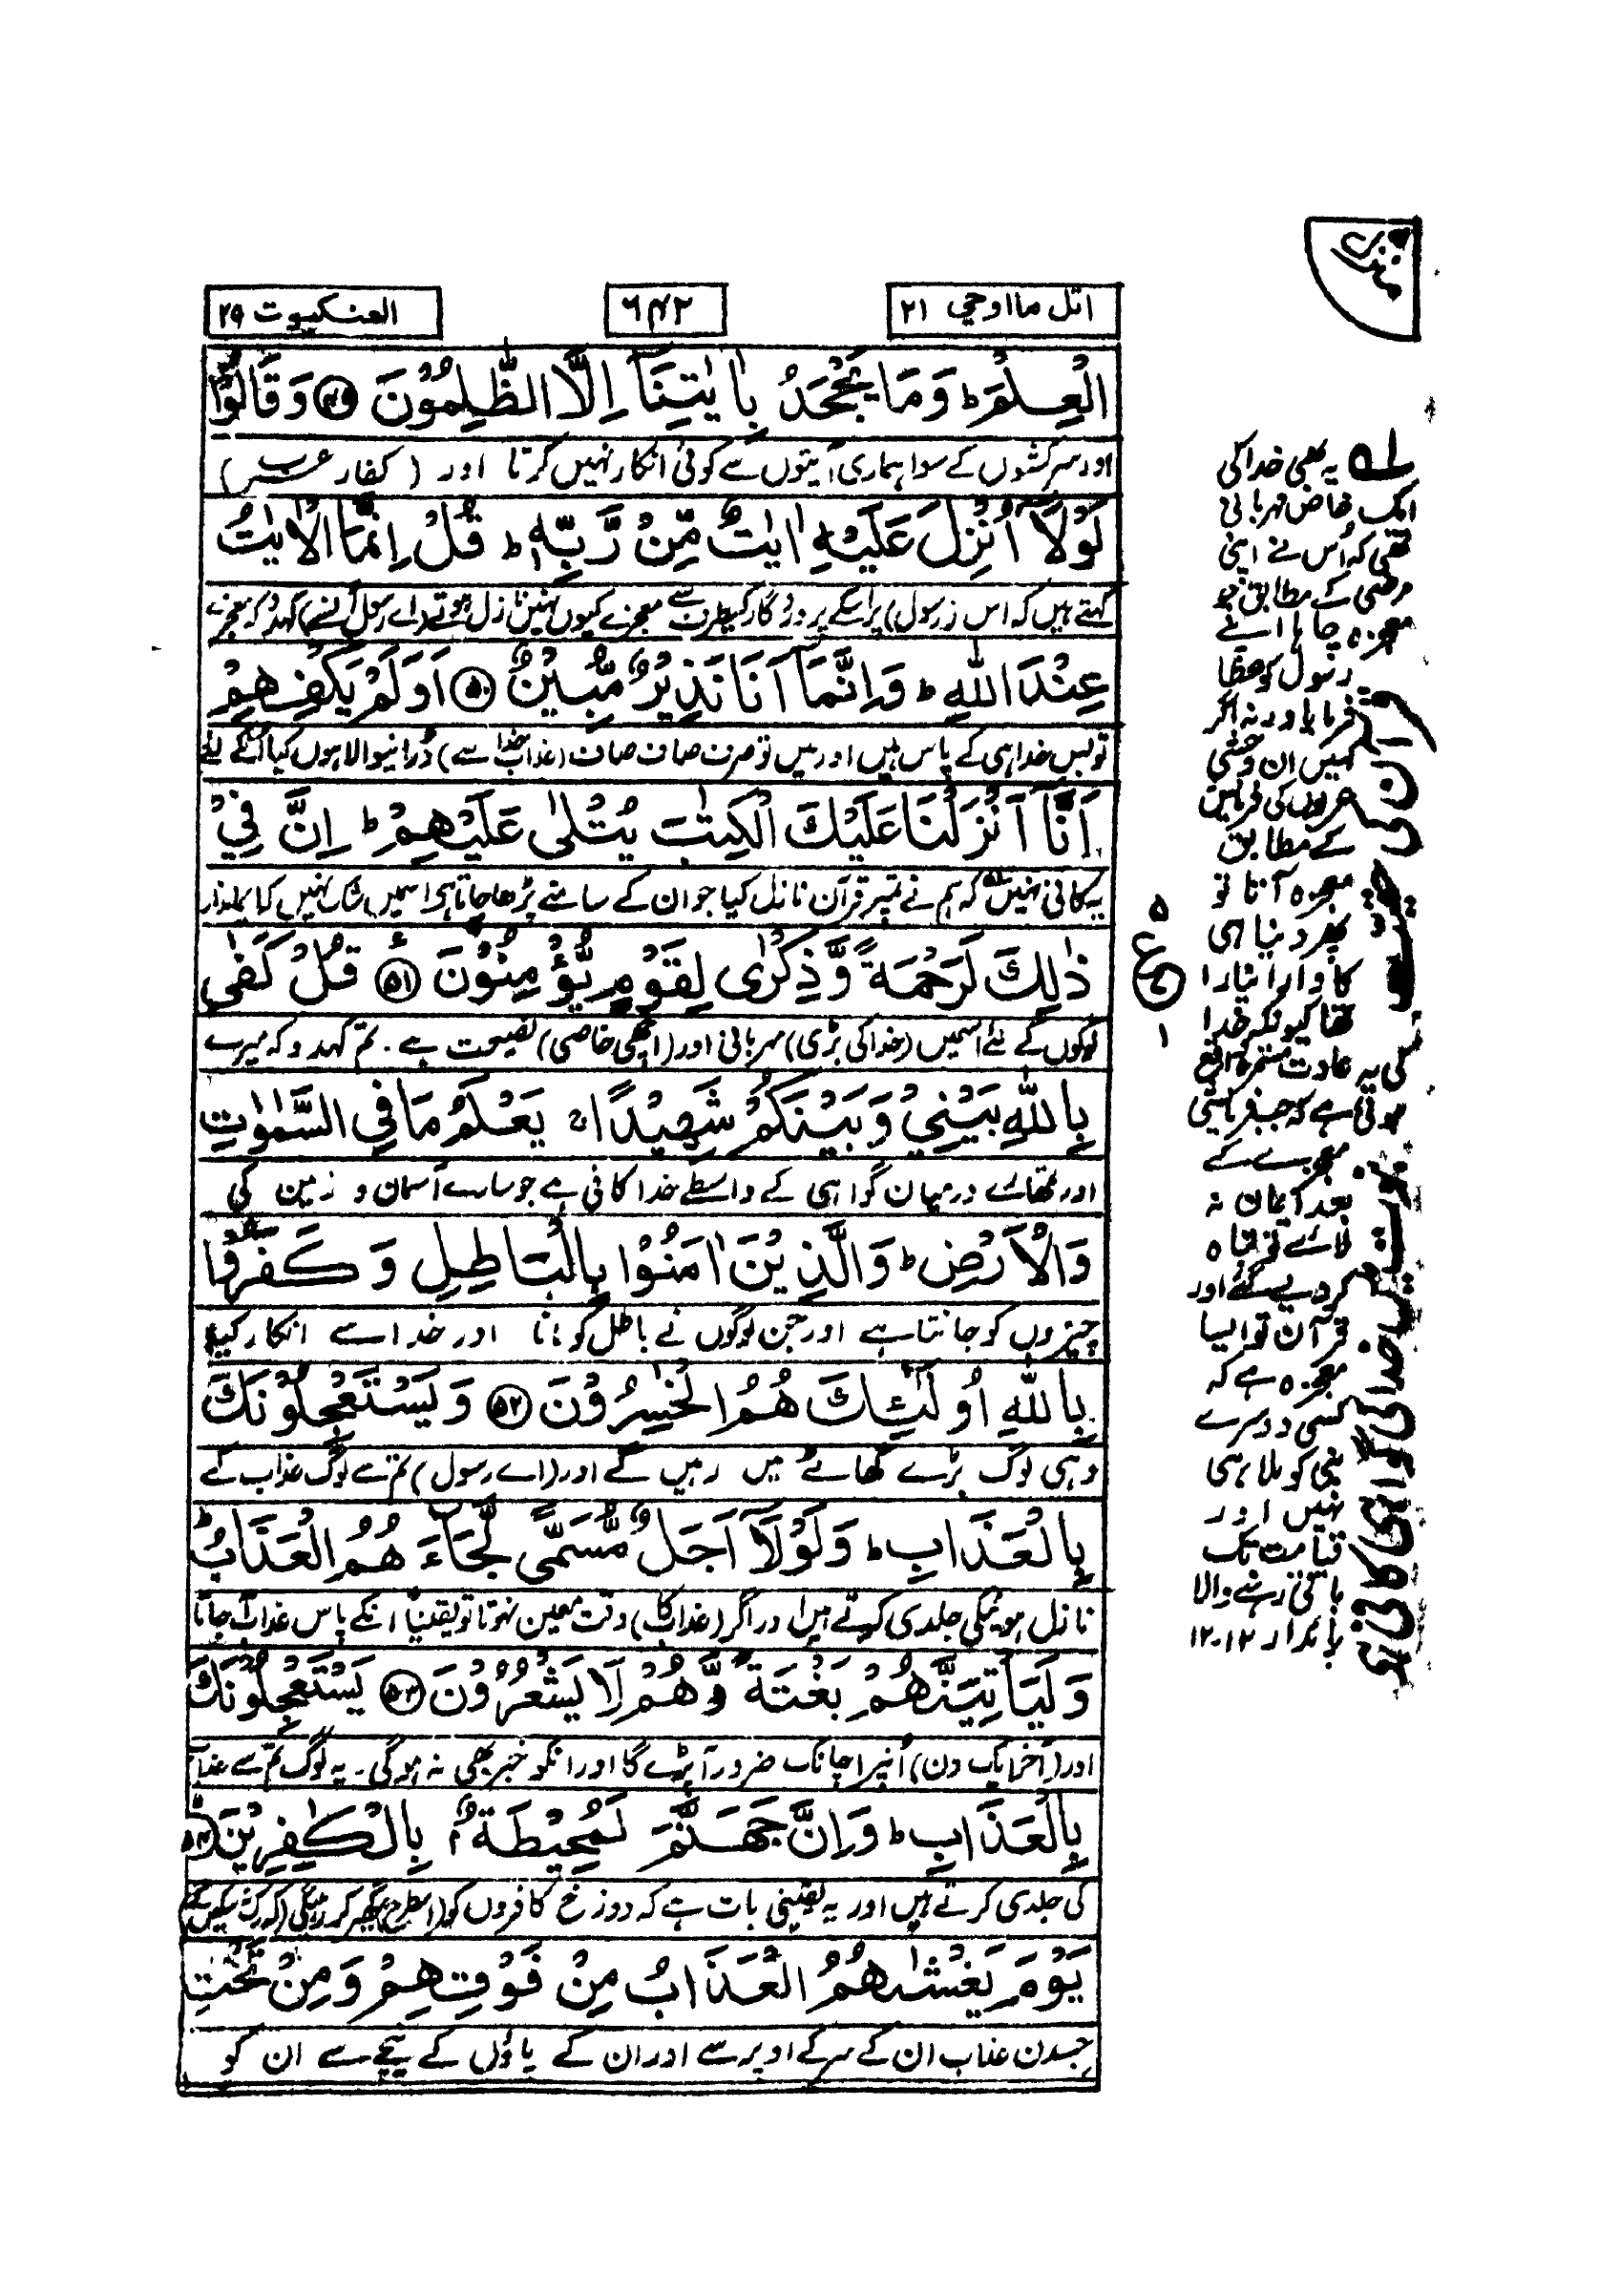 اتل ما اوحي ۲۱
۶۴۲
العنكبوت ۲۹
الْعِلْمَ ؕ وَمَا يَجْحَدُ بِاٰيٰتِنَآ اِلَّا الظّٰلِمُوْنَ ﴿۴۹﴾ وَقَالُوْا
اور سرکشوں کے سوا ہماری آیتوں سے کوئی انکار نہیں کرتا اور (کفار عرب)
لَوْلَآ اُنْزِلَ عَلَيْهِ اٰيٰتٌ مِّنْ رَّبِّهٖ ؕ قُلْ اِنَّمَا الْاٰيٰتُ
کہتے ہیں کہ اس (رسول) پر اسکے پروردگار کیطرف سے معجزے کیوں نہیں نازل ہوتے (اے رسول ان سے) کہدو کہ معجزے
عِنْدَ اللّٰهِ ؕ وَاِنَّمَآ اَنَا نَذِيْرٌ مُّبِيْنٌ ﴿۵۰﴾ اَوَلَمْ يَكْفِهِمْ
تو بس خدا ہی کے پاس ہیں اور میں تو صرف صاف صاف (عذاب خدا سے) ڈرانیوالا ہوں کیا انکے لئے
اَنَّآ اَنْزَلْنَا عَلَيْكَ الْكِتٰبَ يُتْلٰى عَلَيْهِمْ ؕ اِنَّ فِيْ
یہ کافی نہیں کہ ہم نے تمپر قرآن نازل کیا جو ان کے سامنے پڑھا جاتا ہی اسمیں شک نہیں کہ ایماندار
ذٰلِكَ لَرَحْمَةً وَّذِكْرٰى لِقَوْمٍ يُّؤْمِنُوْنَ ﴿۵۱﴾ قُلْ كَفٰى
لوگوں کے لئے اسمیں (خدا کی بڑی) مہربانی اور (اچھی خاصی) نصیحت ہے۔ تم کہدو کہ میرے
بِاللّٰهِ بَيْنِيْ وَبَيْنَكُمْ شَهِيْدًا ۚ يَعْلَمُ مَا فِي السَّمٰوٰتِ
اور تمھارے درمیان گواہی کے واسطے خدا کافی ہے جو سارے آسمان و زمین کی
وَالْاَرْضِ ؕ وَالَّذِيْنَ اٰمَنُوْا بِالْبَاطِلِ وَكَفَرُوْا
چیزوں کو جانتا ہے اور جن لوگوں نے باطل کو مانا اور خدا سے انکار کیا
بِاللّٰهِ اُولٰٓئِكَ هُمُ الْخٰسِرُوْنَ ﴿۵۲﴾ وَيَسْتَعْجِلُوْنَكَ
وہی لوگ بڑے گھاٹے میں رہیں گے اور (اے رسول) تم سے لوگ عذاب کے
بِالْعَذَابِ ؕ وَلَوْلَآ اَجَلٌ مُّسَمًّى لَّجَآءَهُمُ الْعَذَابُ ؕ
نازل ہونیکی جلدی کرتے ہیں اور اگر (عذاب کا) وقت معین نہوتا تو یقیناً انکے پاس عذاب آجاتا
وَلَيَاْتِيَنَّهُمْ بَغْتَةً وَّهُمْ لَا يَشْعُرُوْنَ ﴿۵۳﴾ يَسْتَعْجِلُوْنَكَ
اور (آخر ایک دن) اُنپر اچانک ضرور آپڑے گا اور انکو خبر بھی نہ ہوگی۔ یہ لوگ تم سے عذاب
بِالْعَذَابِ ؕ وَاِنَّ جَهَنَّمَ لَمُحِيْطَةٌ ۢ بِالْكٰفِرِيْنَ ﴿۵۴﴾
کی جلدی کرتے ہیں اور یہ یقینی بات ہے کہ دوزخ کافروں کو (اسطرح) گھیر کر رہیگی (کہ رک نہ سکیں گے)
يَوْمَ يَغْشٰىهُمُ الْعَذَابُ مِنْ فَوْقِهِمْ وَمِنْ تَحْتِ
جسدن عذاب ان کے سر کے اوپر سے اور ان کے پاؤں کے نیچے سے ان کو
۵
ع
۱
یہ بھی خدا کی
ایک خاص مہربانی
تھی کہ اُس نے اپنی
مرضی کے مطابق جو
معجزہ چاہا اپنے
رسول کو عطا
فرمایا ورنہ اگر
کہیں ان وحشی
عربوں کی فرمائش
کے مطابق
معجزہ آتا تو
پھر دنیا ہی
کا وارا نیارا
تھا کیونکہ خدا
کی یہ عادت مستمرہ واقع
ہوئی ہے کہ جب فرمائشی
معجزے کے
بعد ایمان نہ
لائے تو تباہ
کر دیے گئے اور
قرآن تو ایسا
معجزہ ہے کہ
کسی دوسرے
نبی کو ملا ہی
نہیں اور
قیامت تک
باقی رہنے والا
پائدار ۱۲-۱۲